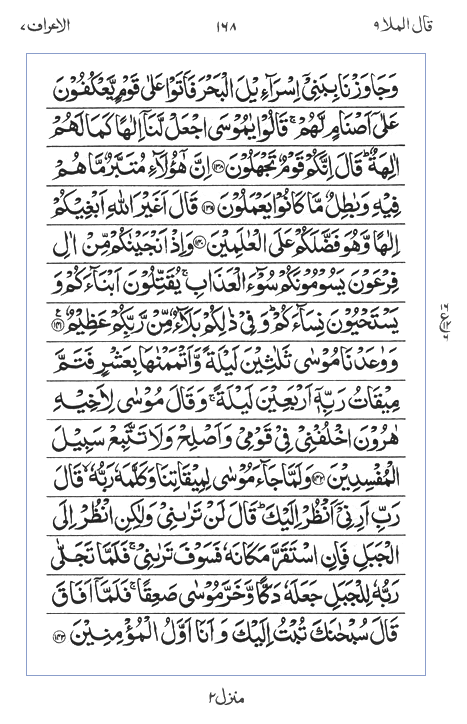 قال الملا ۹ ۱۶۸ الاعراف ۷
وَجَاوَزْنَا بِبَنِيْٓ اِسْرَآءِيْلَ الْبَحْرَ فَاَتَوْا عَلٰى قَوْمٍ يَّعْكُفُوْنَ
عَلٰٓى اَصْنَامٍ لَّهُمْ ۚ قَالُوْا يٰمُوْسَى اجْعَلْ لَّنَآ اِلٰهًا كَمَا لَهُمْ
اٰلِهَةٌ ؕ قَالَ اِنَّكُمْ قَوْمٌ تَجْهَلُوْنَ ۱۳۸ اِنَّ هٰٓؤُلَآءِ مُتَبَّرٌ مَّا هُمْ
فِيْهِ وَبٰطِلٌ مَّا كَانُوْا يَعْمَلُوْنَ ۱۳۹ قَالَ اَغَيْرَ اللهِ اَبْغِيْكُمْ
اِلٰهًا وَّهُوَ فَضَّلَكُمْ عَلَى الْعٰلَمِيْنَ ۱۴۰ وَاِذْ اَنْجَيْنٰكُمْ مِّنْ اٰلِ
فِرْعَوْنَ يَسُوْمُوْنَكُمْ سُوْٓءَ الْعَذَابِ ۚ يُقَتِّلُوْنَ اَبْنَآءَكُمْ وَ
يَسْتَحْيُوْنَ نِسَآءَكُمْ ؕ وَفِيْ ذٰلِكُمْ بَلَآءٌ مِّنْ رَّبِّكُمْ عَظِيْمٌ ۱۴۱
وَوٰعَدْنَا مُوْسٰى ثَلٰثِيْنَ لَيْلَةً وَّاَتْمَمْنٰهَا بِعَشْرٍ فَتَمَّ
مِيْقَاتُ رَبِّهٖٓ اَرْبَعِيْنَ لَيْلَةً ۚ وَقَالَ مُوْسٰى لِاَخِيْهِ
هٰرُوْنَ اخْلُفْنِيْ فِيْ قَوْمِيْ وَاَصْلِحْ وَلَا تَتَّبِعْ سَبِيْلَ
الْمُفْسِدِيْنَ ۱۴۲ وَلَمَّا جَآءَ مُوْسٰى لِمِيْقَاتِنَا وَكَلَّمَهٗ رَبُّهٗ ۙ قَالَ
رَبِّ اَرِنِيْٓ اَنْظُرْ اِلَيْكَ ؕ قَالَ لَنْ تَرٰىنِيْ وَلٰكِنِ انْظُرْ اِلَى
الْجَبَلِ فَاِنِ اسْتَقَرَّ مَكَانَهٗ فَسَوْفَ تَرٰىنِيْ ۚ فَلَمَّا تَجَلّٰى
رَبُّهٗ لِلْجَبَلِ جَعَلَهٗ دَكًّا وَّخَرَّ مُوْسٰى صَعِقًا ۚ فَلَمَّآ اَفَاقَ
قَالَ سُبْحٰنَكَ تُبْتُ اِلَيْكَ وَاَنَا اَوَّلُ الْمُؤْمِنِيْنَ ۱۴۳
منزل ۲